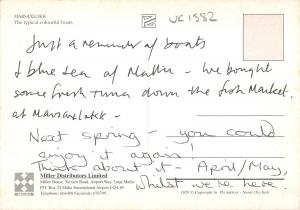 MARSAXLOKK
The typical colourful boats.
UC1582
Just a reminder of boats
& blue sea of Malta - We bought
some fresh tuna down the fish Market
at Marsaxlokk -
Next Spring - you could
enjoy it again!
Think about it - April/May,
whilst we're here.
Miller Distributors Limited
Miller House, Tarxien Road, Airport Way, Luqa Malta
P.O. Box 25 Malta International Airport LQA 05
Telephone: 664488 Facsimile: 676799